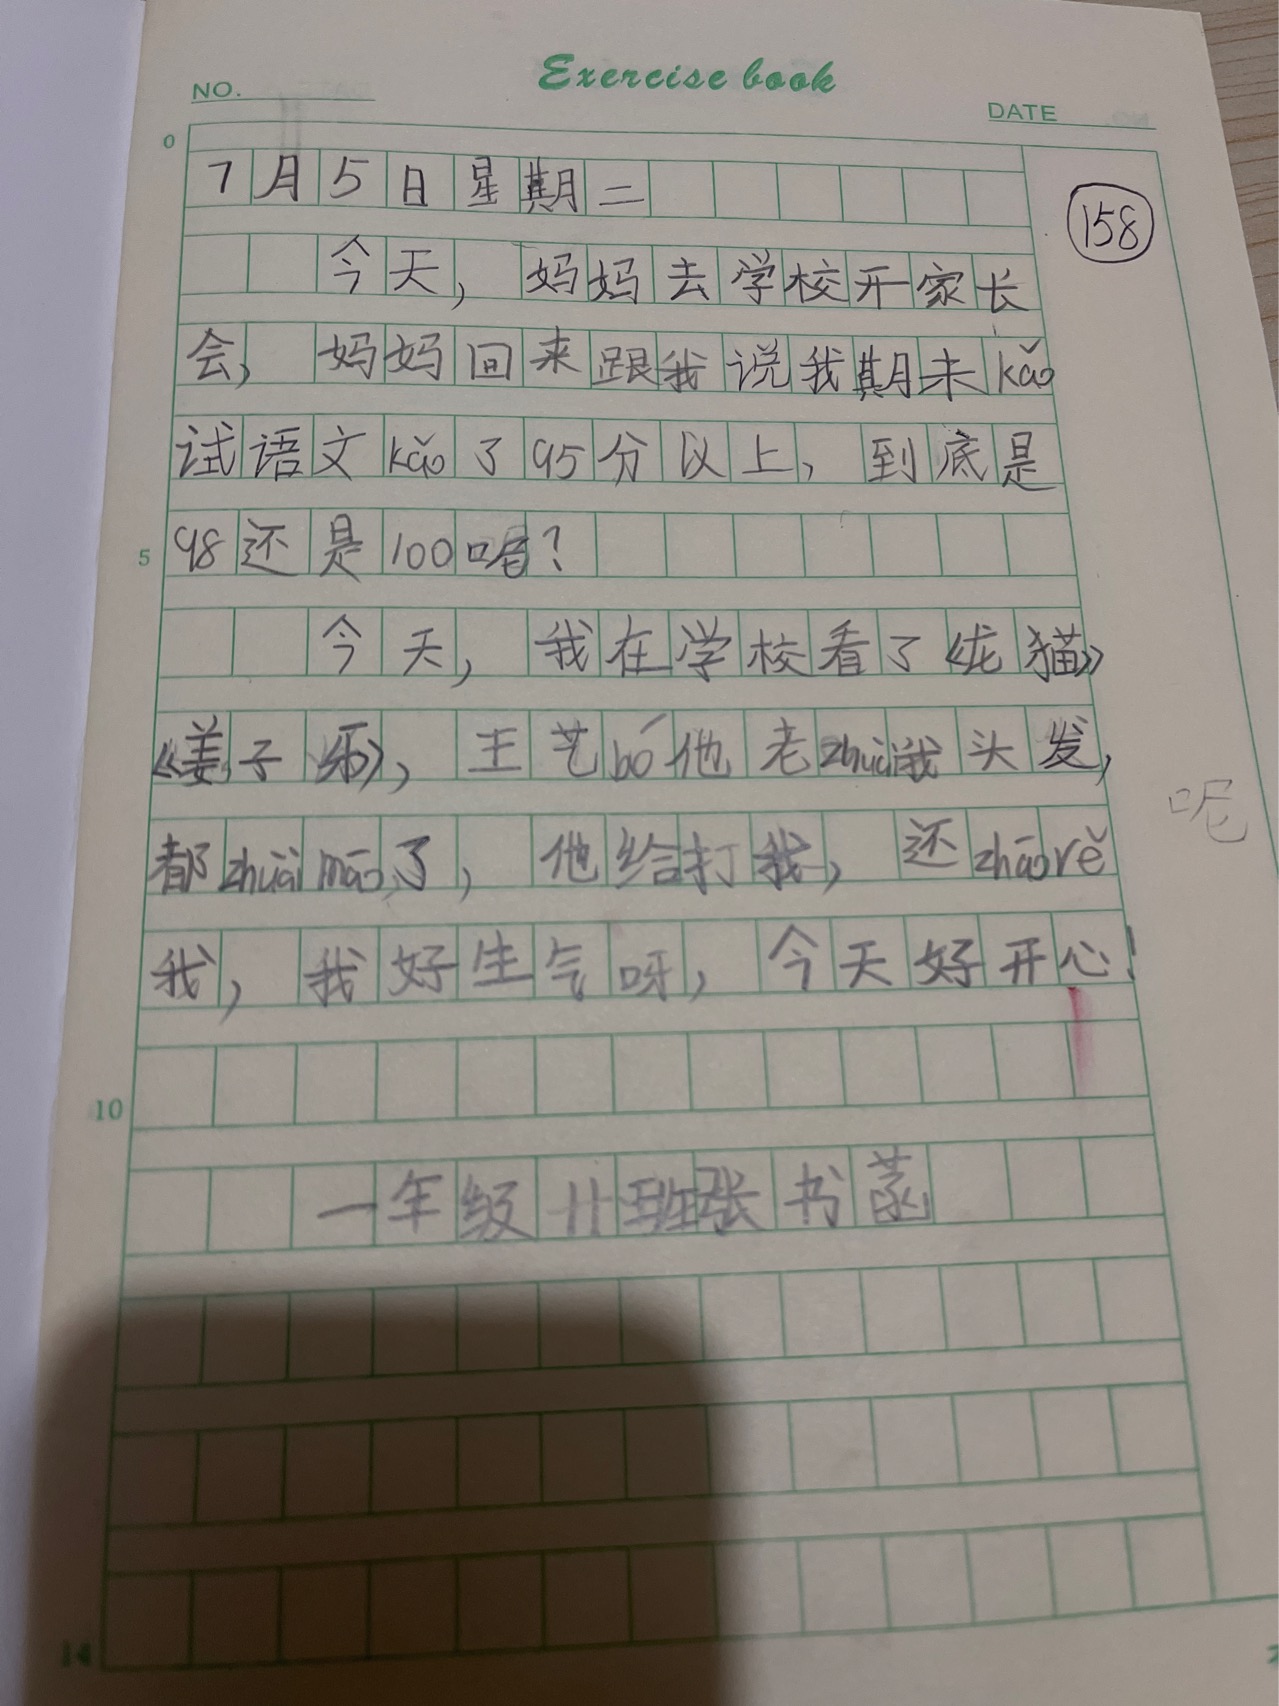 Exercise book
NO.
DATE
0
7月5日星期二
158
今天，妈妈去学校开家长
会，妈妈回来跟我说我期末kǎo
试语文kǎo了95分以上，到底是
5
98还是100呢？
今天，我在学校看了《龙猫》
《姜子牙》，王艺bó他老zhuāi我头发，
呢
都zhuāi māo了，他给打我，还zhāorě
我，我好生气呀，今天好开心！
10
一年级廿班张书菡
14